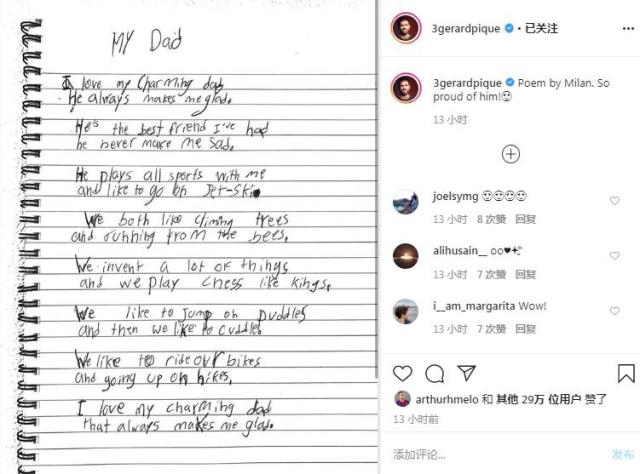 MY Dad
I love my charming dad
He always makes me glad.
He's the best friend I've had
he never make me sad.
He plays all sports with me
and like to go on Jet-ski
We both like climing trees
and running from the bees.
We invent a lot of things
and we play chess like kings.
We like to jump on puddles
and then we like to cuddle.
We like to ride our bikes
and going up on hikes.
I love my charming dad
that always makes me glad.
3gerardpique • 已关注
3gerardpique Poem by Milan. So
proud of him!😍
13 小时
joelsymg 😍😍😍😍
13 小时 8 次赞 回复
alihusain__ oo♥✨
13 小时 7 次赞 回复
i__am_margarita Wow!
13 小时 7 次赞 回复
arthurhmelo 和 其他 29万 位用户 赞了
13 小时前
添加评论... 发布